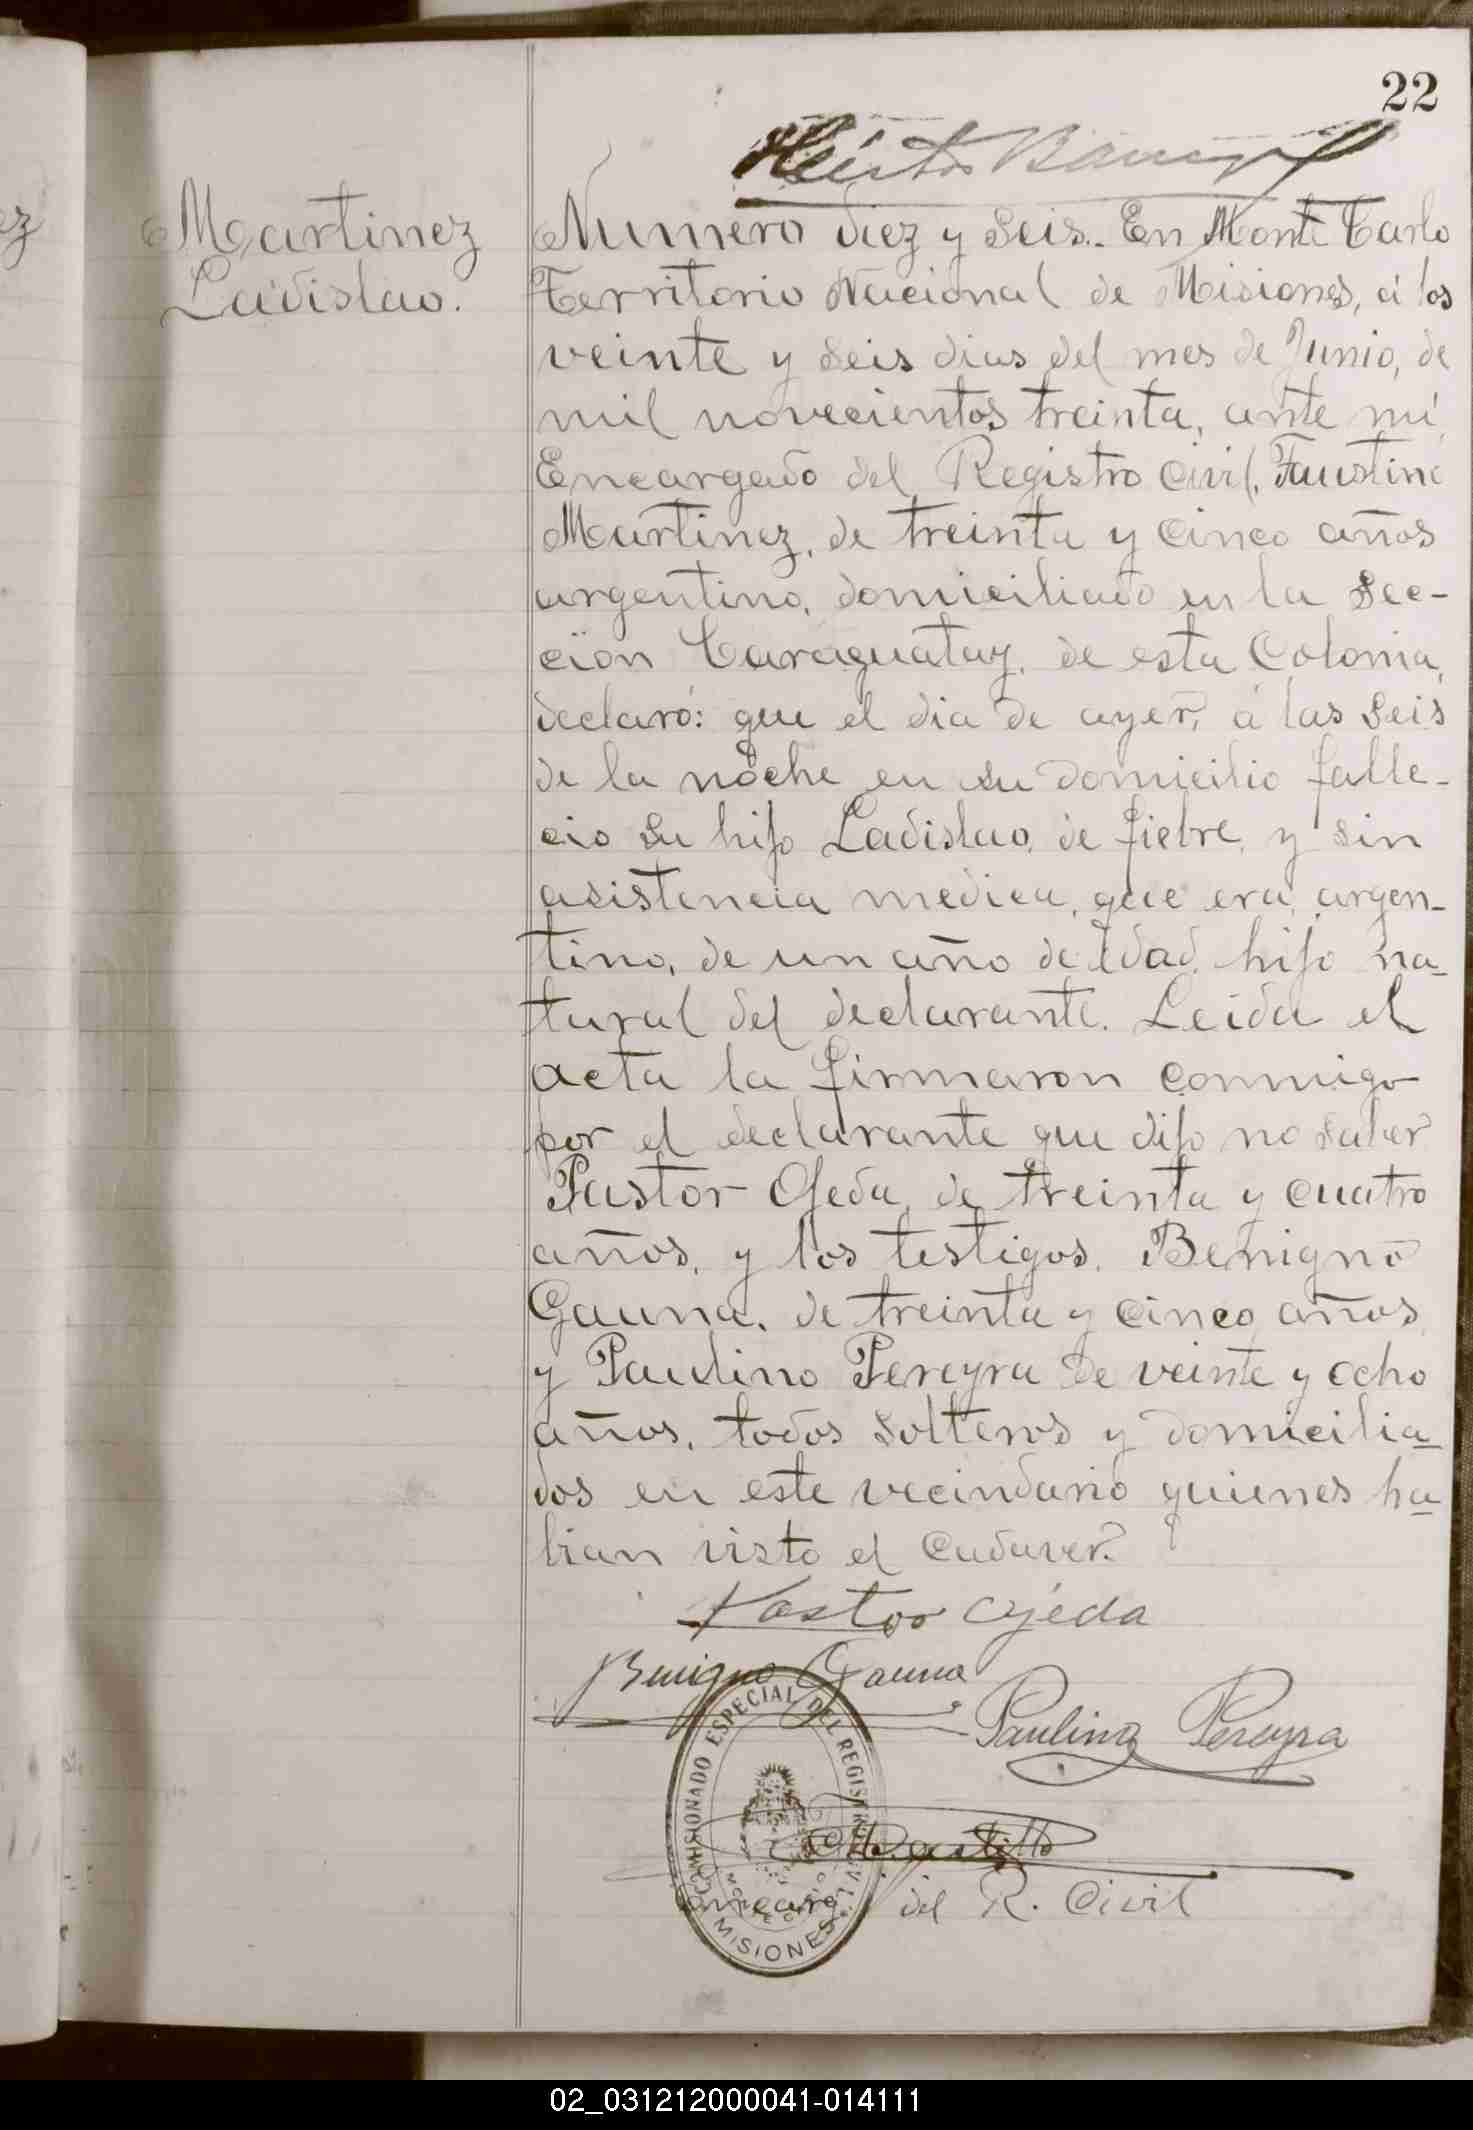 22
Martinez
Ladislao.
Numero diez y seis.. En Monte Carlo
Territorio Nacional de Misiones, á los
veinte y seis dias del mes de Junio, de
mil novecientos treinta, ante mi
Encargado del Registro Civil, Faustino
Martinez, de treinta y cinco años
argentino, domiciliado en la Sec-
cion Caraguatay, de esta Colonia,
declaró: que el dia de ayer, á las seis
de la noche en su domicilio falle-
cio su hijo Ladislao, de fiebre, y sin
asistencia medica, que era, argen-
tino, de un año de edad, hijo na-
tural del declarante. Leida el
acta la firmaron conmigo
por el declarante que dijo no saber
Pastor Ojeda, de treinta y cuatro
años, y los testigos, Benigno
Gauna, de treinta y cinco años,
y Paulino Pereyra de veinte y ocho
años, todos solteros y domicilia-
dos en este vecindario quienes ha-
bian visto el cadaver.
Pastor Ojeda
Benigno Gauna
Paulino Pereyra
COMISIONADO ESPECIAL DEL REGISTRO CIVIL
MONTE CARLO
MISIONES
Castillo
Encarg. del R. Civil
02_031212000041-014111